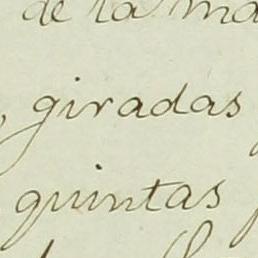 de la ma
, giradas
quintas